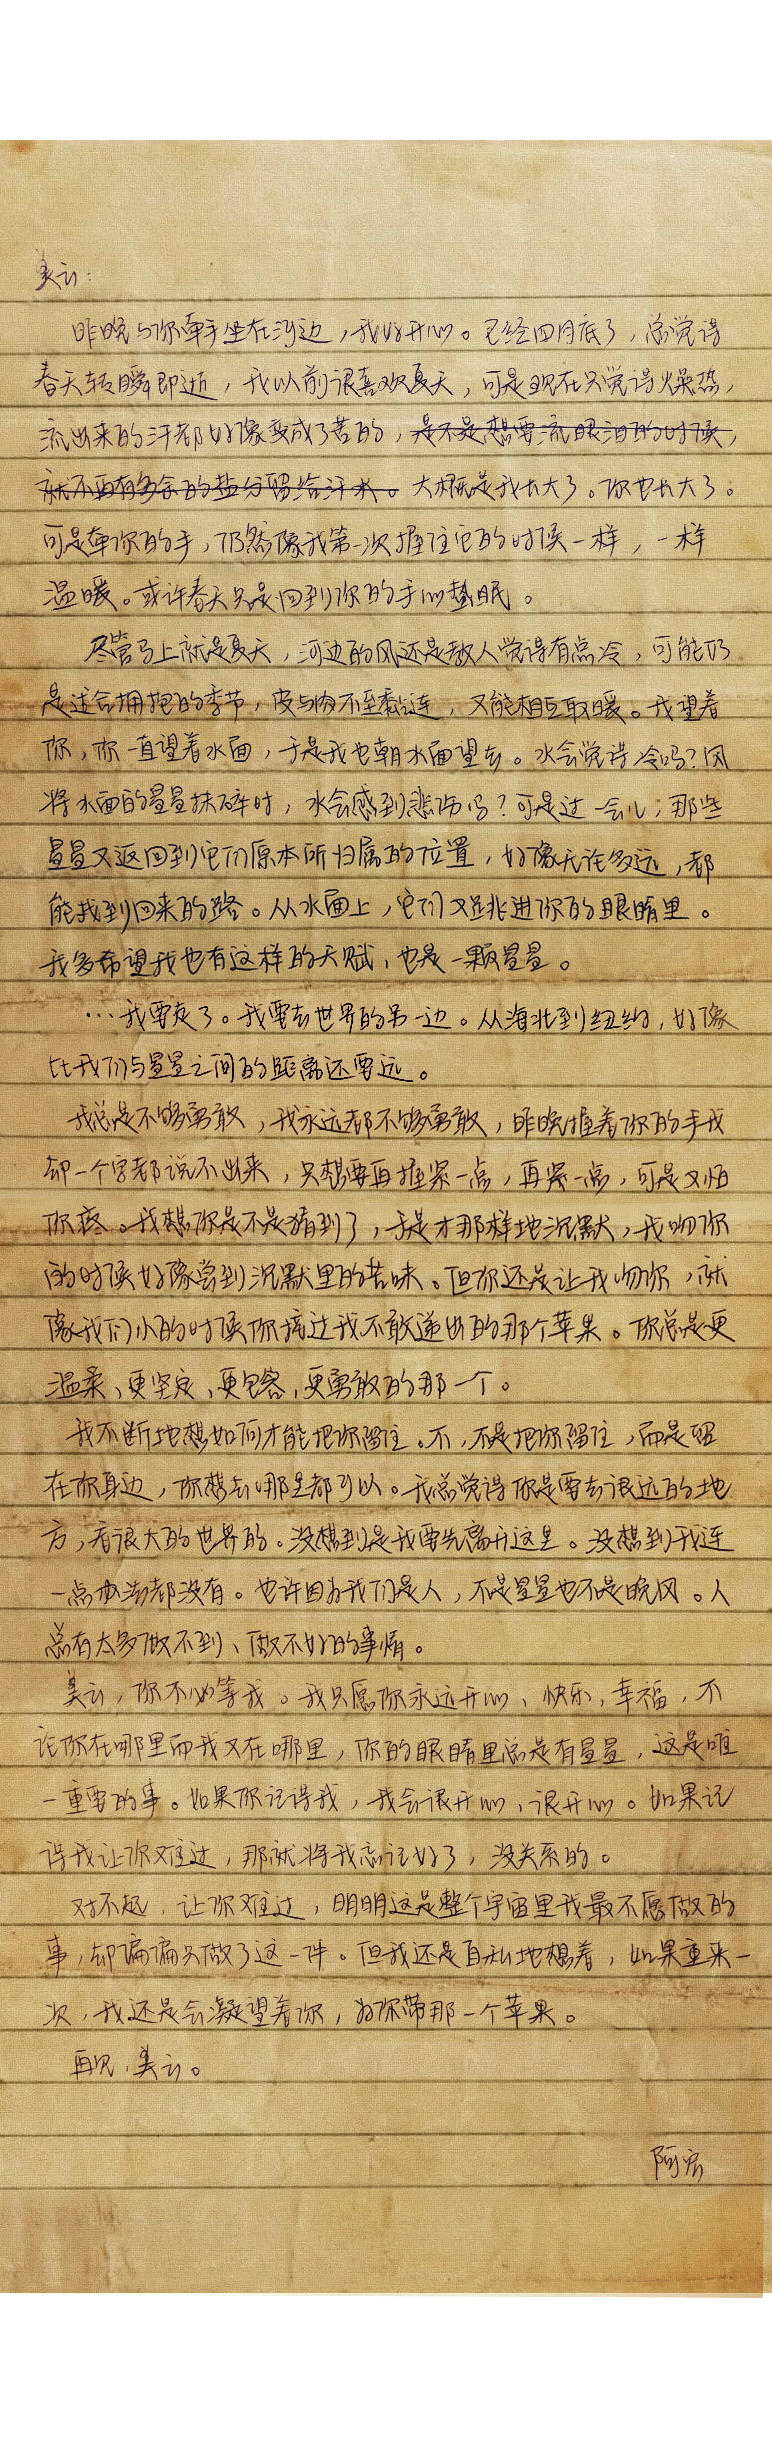 美云：
昨晚与你牵手坐在河边，我好开心。已经四月底了，总觉得
春天转瞬即逝，我以前很喜欢夏天，可是现在只觉得燥热，
流出来的汗都好像变成了苦的，是不是想要流眼泪的时候，
就不再有多余的盐分留给汗水。大概是我长大了。你也长大了。
可是牵你的手，仍然像我第一次握住它的时候一样，一样
温暖。或许春天只是回到你的手心蛰眠。
尽管马上就是夏天，河边的风还是教人觉得有点冷，可能仍
是适合拥抱的季节，皮与肉不至黏连，又能相互取暖。我望着
你，你一直望着水面，于是我也朝水面望去。水会觉得冷吗？风
将水面的星星抹碎时，水会感到悲伤吗？可是过一会儿，那些
星星又返回到它们原本所归属的位置，好像无论多远，都
能找到回来的路。从水面上，它们又跳进你的眼睛里。
我多希望我也有这样的天赋，也是一颗星星。
…我要走了。我要去世界的另一边。从海北到纽约，好像
比我们与星星之间的距离还要远。
我总是不够勇敢，我永远都不够勇敢，昨晚握着你的手我
却一个字都说不出来，只想要再握紧一点，再紧一点，可是又怕
你疼。我想你是不是猜到了，于是才那样地沉默，我吻你
的时候好像尝到沉默里的苦味。但你还是让我吻你，就
像我们小的时候你接过我不敢递出的那个苹果。你总是更
温柔、更坚定、更包容、更勇敢的那一个。
我不断地想如何才能把你留住。不，不是把你留住，而是留
在你身边，你想去哪里都可以。我总觉得你是要去很远的地
方，看很大的世界的。没想到是我要先离开这里。没想到我连
一点办法都没有。也许因为我们是人，不是星星也不是晚风。人
总有太多做不到、做不好的事情。
美云，你不必等我。我只愿你永远开心、快乐，幸福，不
论你在哪里而我又在哪里，你的眼睛里总是有星星，这是唯
一重要的事。如果你记得我，我会很开心、很开心。如果记
得我让你难过，那就将我忘记好了，没关系的。
对不起，让你难过，明明这是整个宇宙里我最不愿做的
事，却偏偏只做了这一件。但我还是自私地想着，如果重来一
次，我还是会凝望着你，为你带那一个苹果。
再见，美云。
阿宏